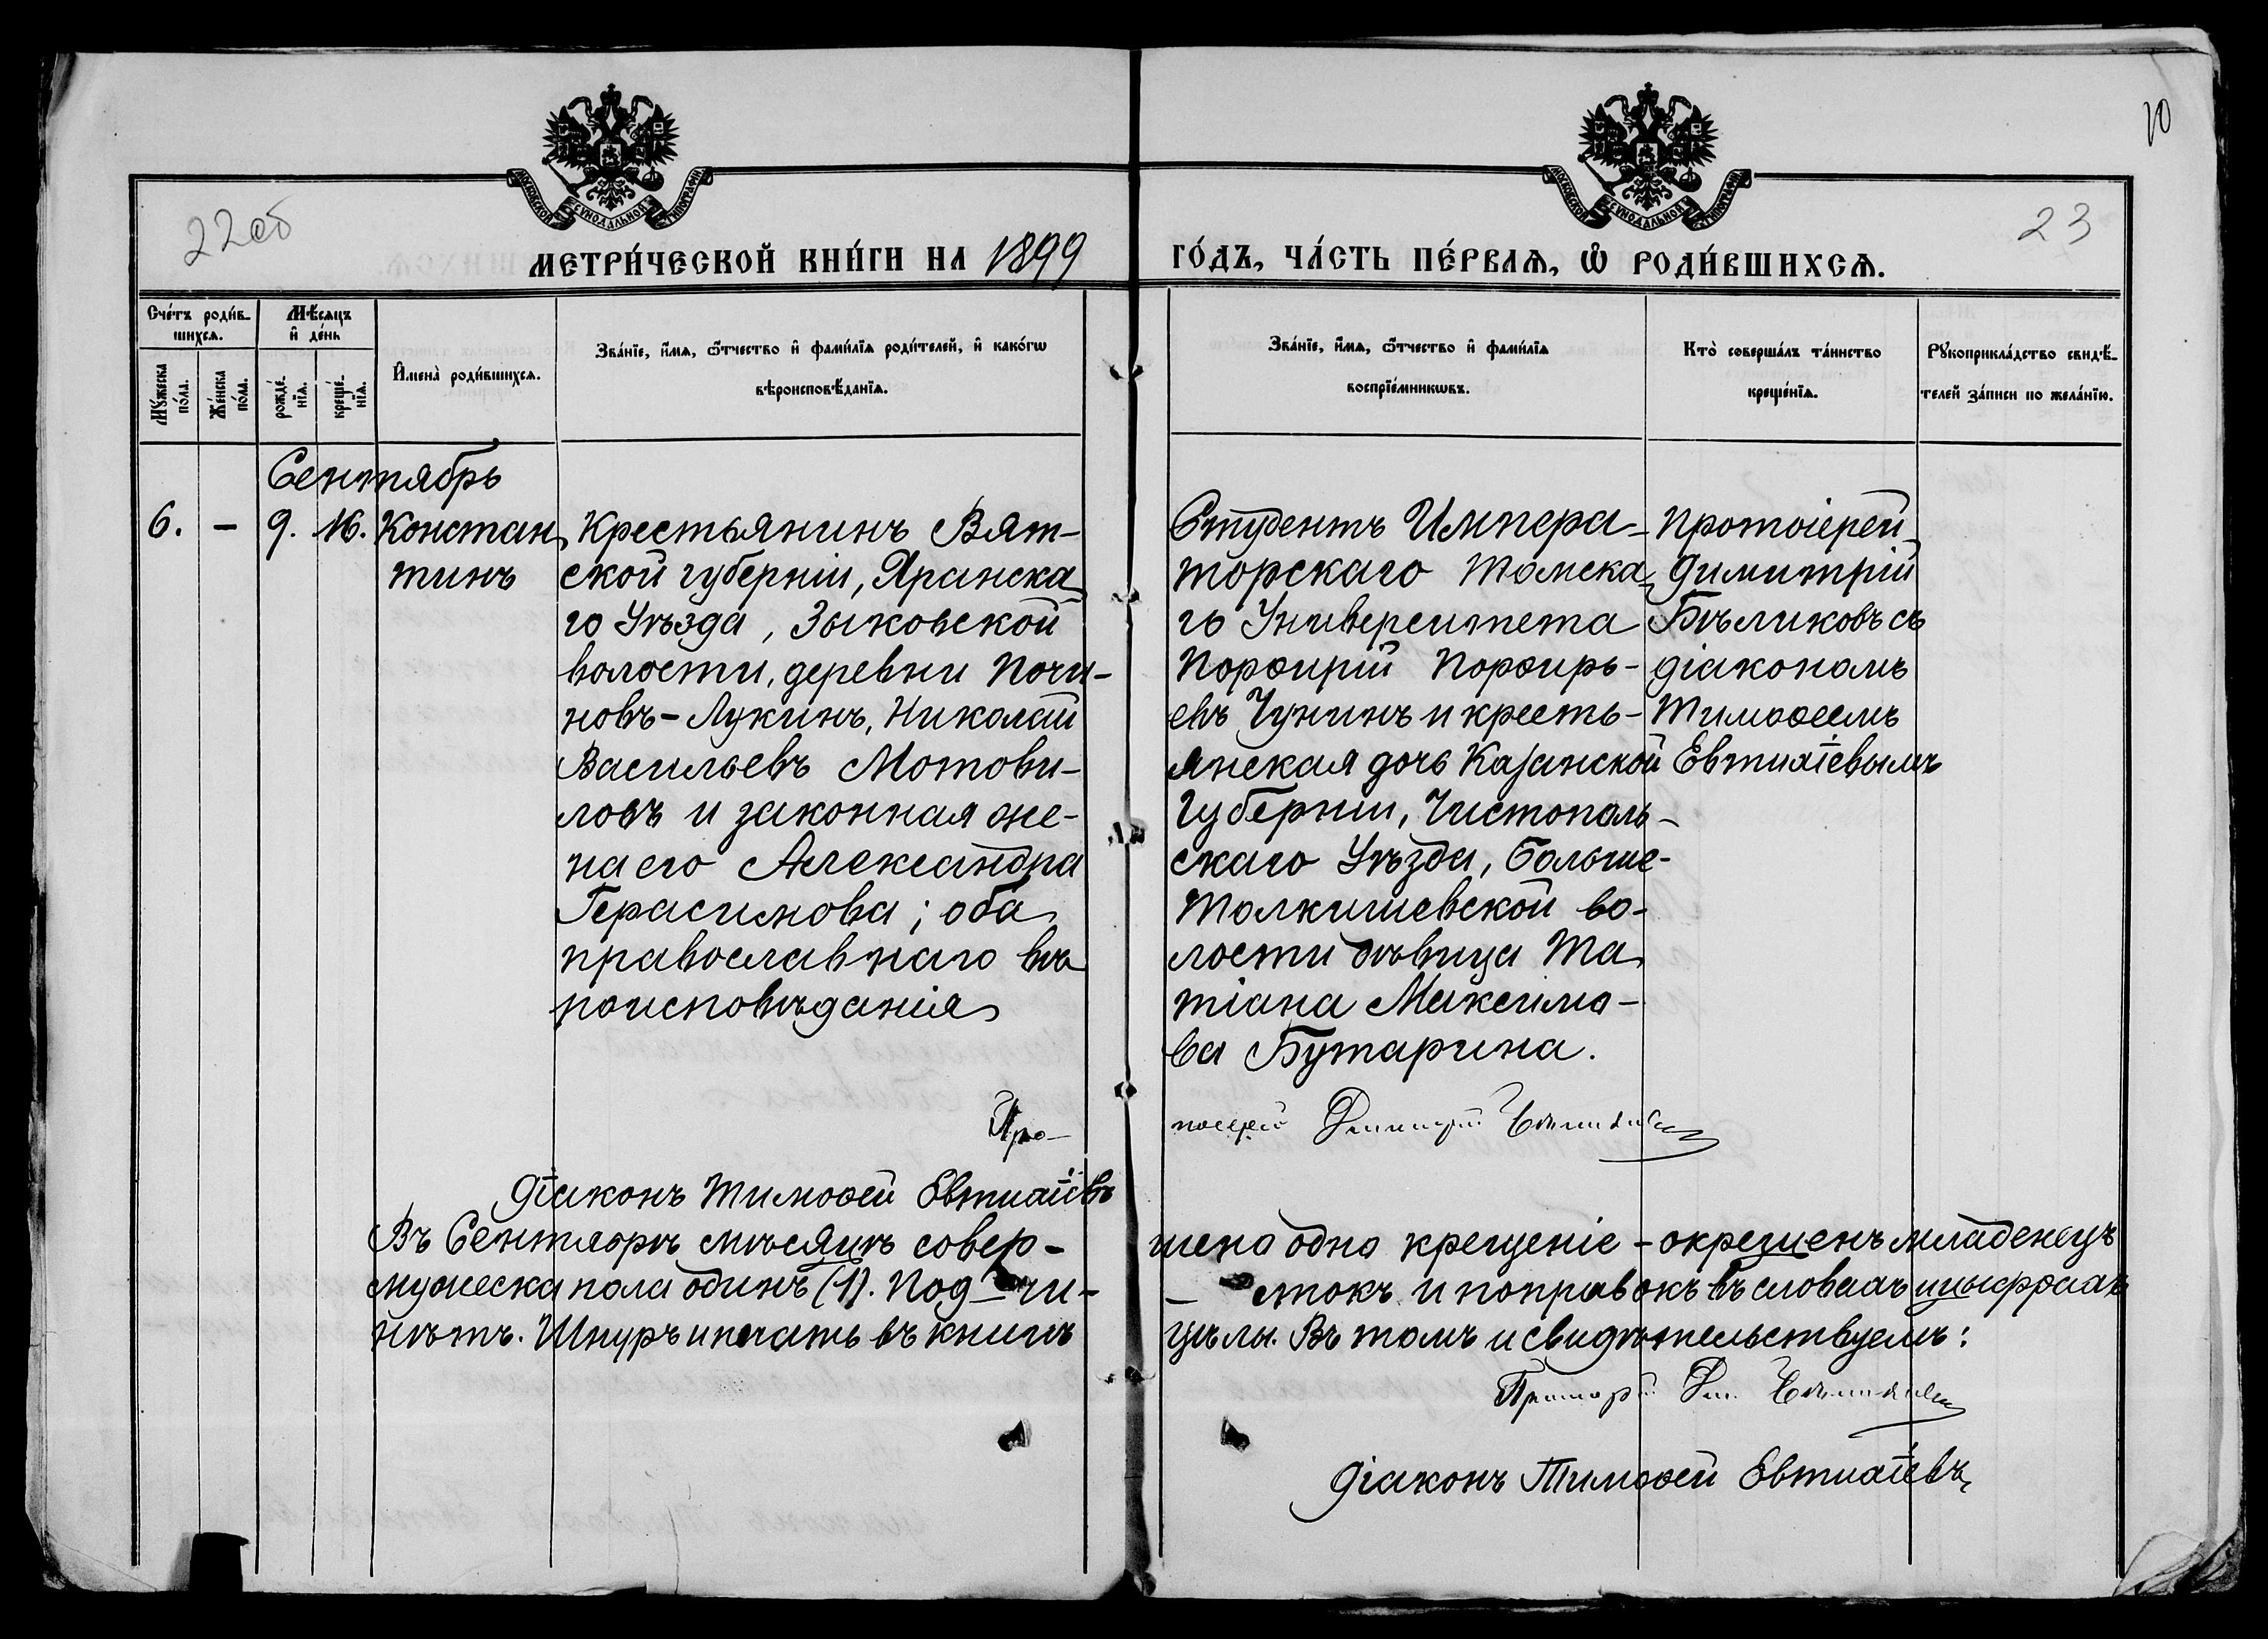 10
МОСКОВСКОЙ СѴНОДАЛЬНОЙ ТИПОГРАФІИ
МОСКОВСКОЙ СѴНОДАЛЬНОЙ ТИПОГРАФІИ
22об
23
МЕТРИ́ЧЕСКОЙ КНИ́ГИ НА 1899
ГО́ДЪ, ЧА́СТЬ ПЕ́РВАѦ, Ѡ҆ РОДИ́ВШИХСѦ.
Сче́тъ роди́в-
шихсѧ.
Мѣ́сѧцъ
и҆ де́нь
Мꙋ́жеска
по́ла.
Же́нска
по́ла.
рожде́-
нїѧ.
креще́-
нїѧ.
И҆мена̀ роди́вшихсѧ.
Зва́нїе, и҆́мѧ, ѻ҆́тчество и҆ фами́лїѧ роди́телей, и҆ како́гѡ
вѣроисповѣ́данїѧ.
Зва́нїе, и҆́мѧ, ѻ҆́тчество и҆ фами́лїѧ
воспрїе́мникѡвъ.
Кто̀ соверша́лъ та́инство
креще́нїѧ.
Рꙋкоприкла́дство свидѣ́-
телей за́писи по жела́нїю.
Сентябрь
6. – 9. 16.
Констан
тинъ
Крестьянинъ Вят-
ской губерніи, Яранска
го Уѣзда, Зыковской
волости, деревни Почи-
новъ-Лукинъ, Николай
Васильевъ Мотови-
ловъ и законная же-
на его Александра
Герасимова; оба
православнаго вѣ
роисповѣданія
Студентъ Импера-
торскаго Томска
го Университета
Порфирій Порфирь-
евъ Чунинъ и кресть-
янская дочь Казанской
Губерніи, Чистополь-
скаго Уѣзда, Больше-
Толкишевской во-
лости дѣвица Та
тіана Максимо-
ва Бутарина.
Протоіерей
Димитрій
Бѣликовъ съ
діакономъ
Тимоѳеемъ
Евтихіевымъ
Про-
тоіерей Димитрій Бѣликовъ
Діаконъ Тимоѳей Евтихіевъ
Въ Сентябрѣ мѣсяцѣ совер-
шено одно крещеніе – окрещенъ младенецъ
мужеска пола одинъ (1). Под чи-
– стокъ и поправокъ въ словахъ и цыфрахъ
нѣтъ. Шнуръ и печать въ книгѣ
цѣлы. Въ томъ и свидѣтельствуемъ:
Протоіерей Дим. Бѣликовъ
Діаконъ Тимоѳей Евтихіевъ